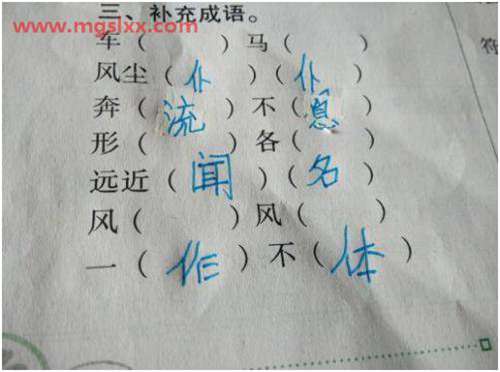 三、补充成语。
www.mgslxx.com
车（ ）马（ ）
风尘（仆）（仆）
奔（流）不（息）
形（ ）各（ ）
远近（闻）（名）
风（ ）风（ ）
一（作）不（体）
符